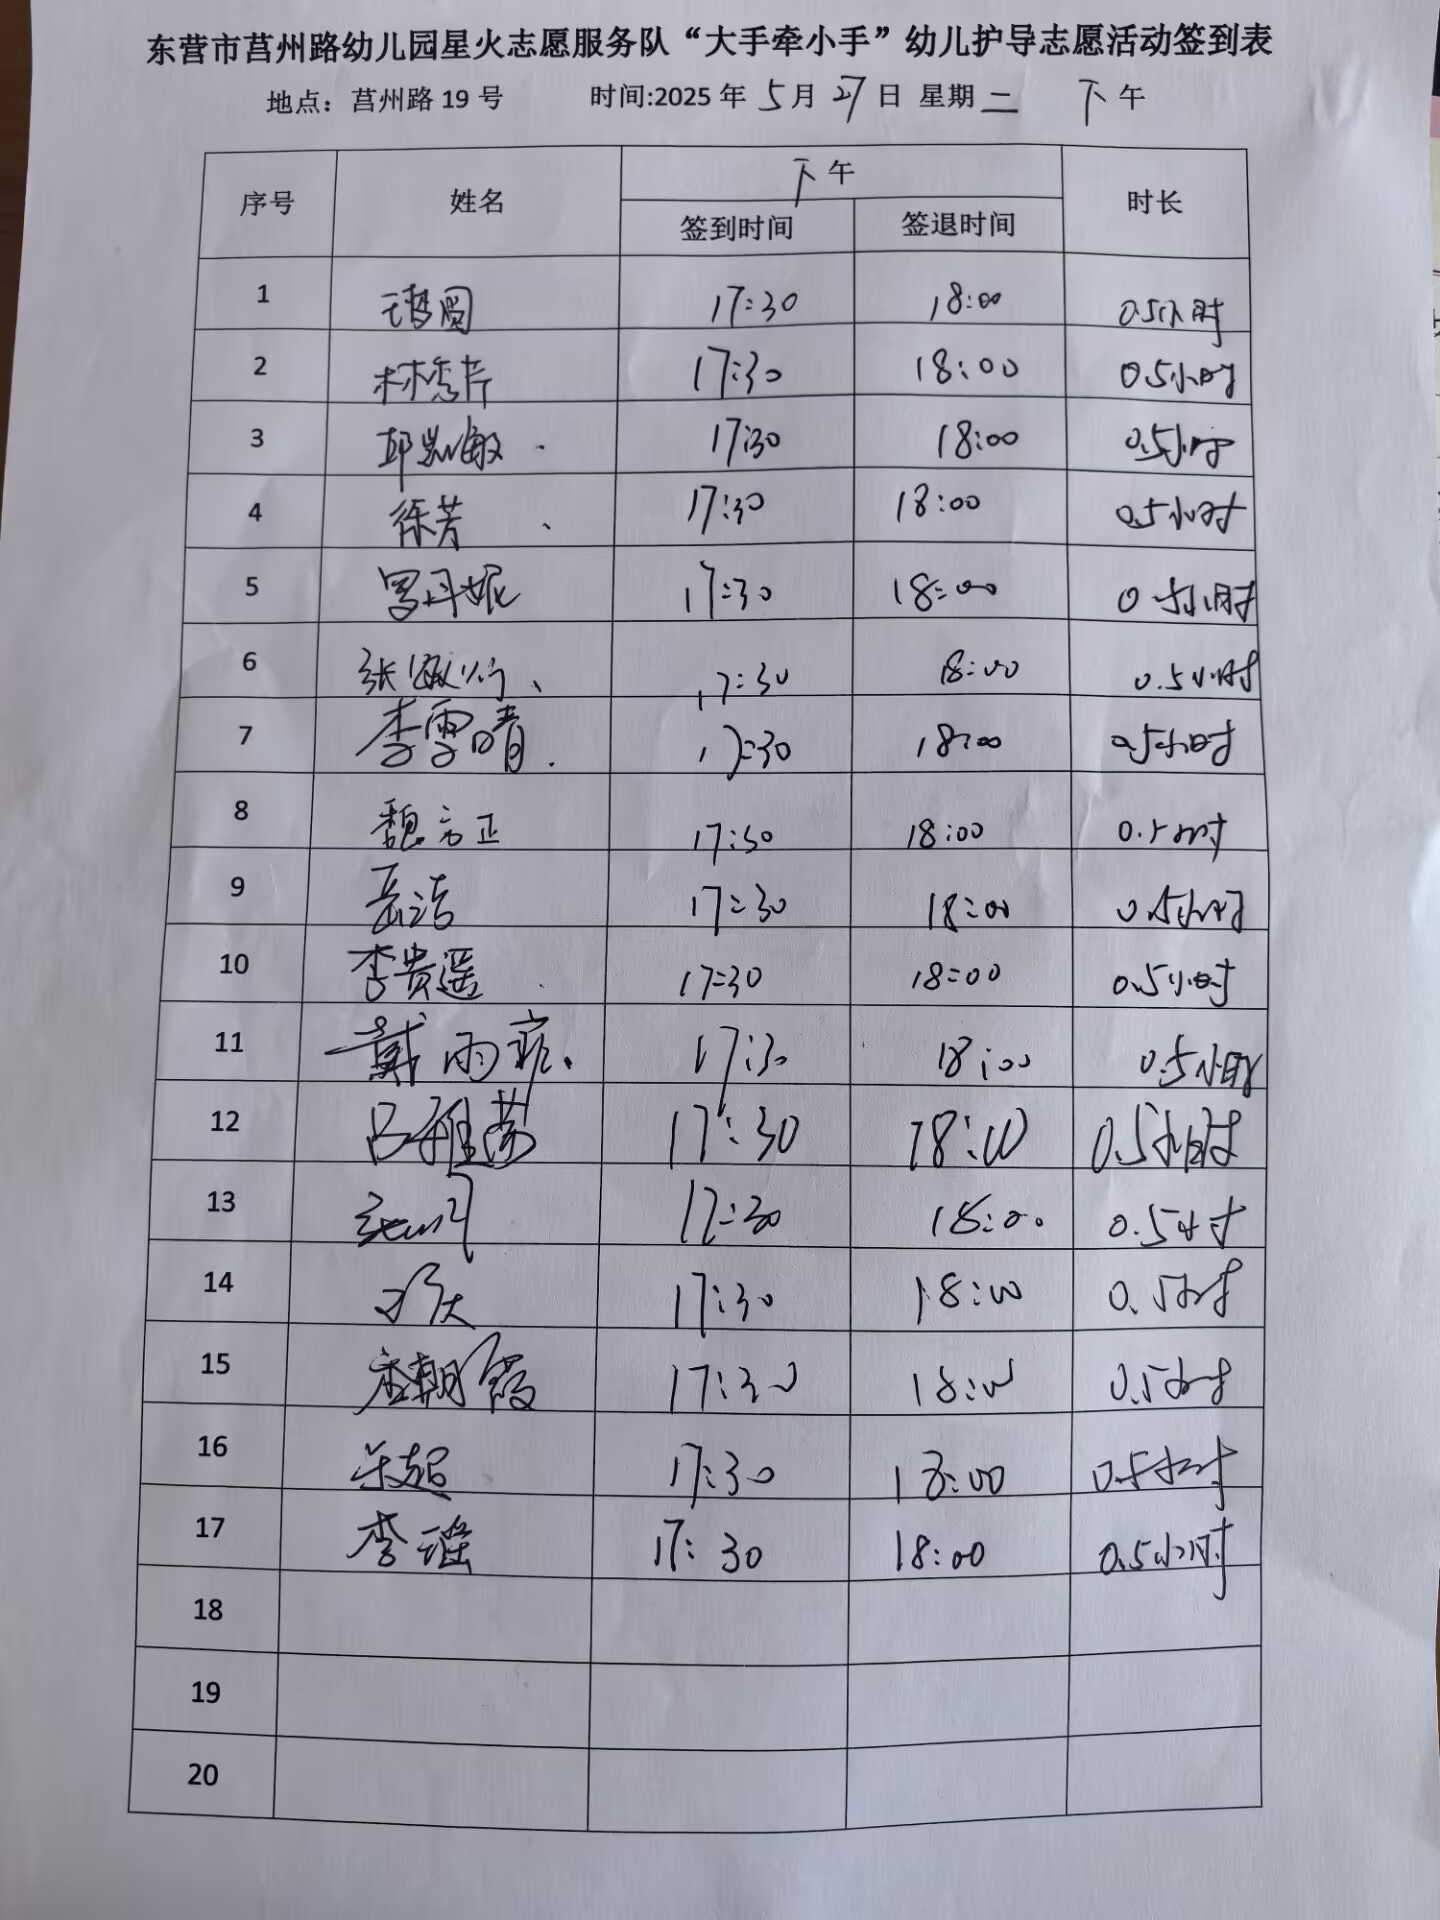 东营市莒州路幼儿园星火志愿服务队“大手牵小手”幼儿护导志愿活动签到表
地点：莒州路 19 号 时间:2025 年 5 月 27 日 星期 二 下 午
序号 姓名 下 午 时长
签到时间 签退时间
1 17:30 18:00 0.5小时
2 林秀芹 17:30 18:00 0.5小时
3 17:30 18:00 0.5小时
4 徐芳 17:30 18:00 0.5小时
5 罗丹妮 17:30 18:00 0.5小时
6 17:30 18:00 0.5小时
7 李雪晴 17:30 18:00 0.5小时
8 魏方正 17:30 18:00 0.5小时
9 岳洁 17:30 18:00 0.5小时
10 李贵遥 17:30 18:00 0.5小时
11 戴雨 17:30 18:00 0.5小时
12 吕雅茹 17:30 18:00 0.5小时
13 17:30 18:00 0.5小时
14 17:30 18:00 0.5小时
15 唐朝霞 17:30 18:00 0.5小时
16 17:30 18:00 0.5小时
17 李瑶 17:30 18:00 0.5小时
18
19
20